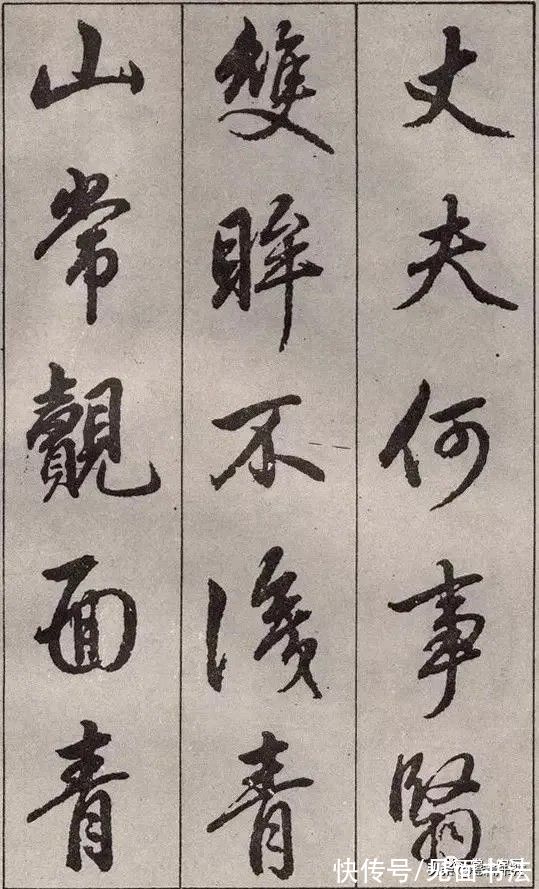 丈夫何事翳
雙眸不識青
山常覿面青
快传号/见面书法